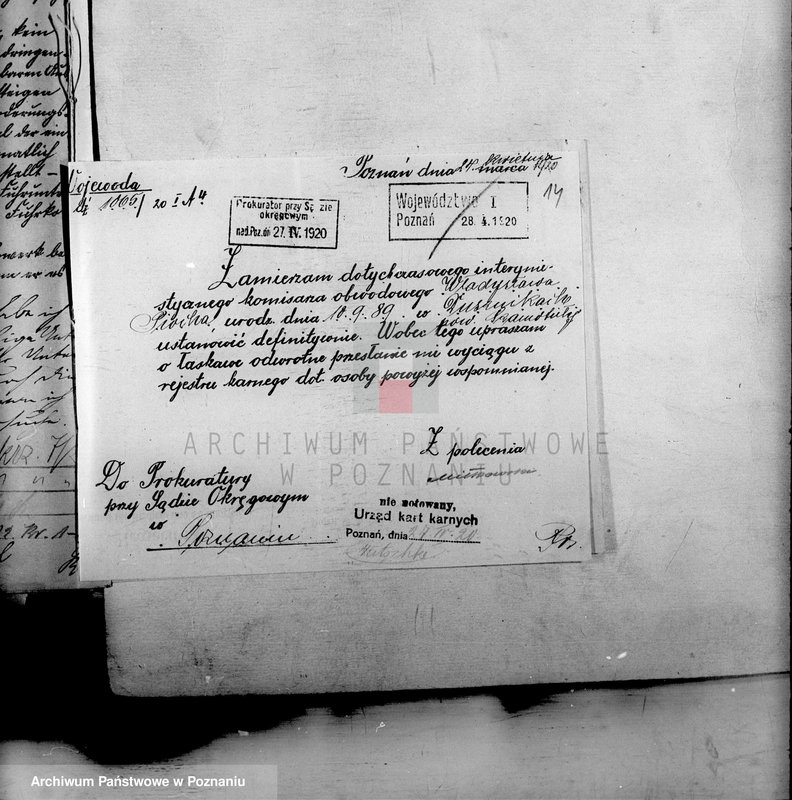 kein
dringen-
baren
steigen
derungs-
al der ein
natlich
stellt -
Fuhrko
werk be-
n er es
Poznań dnia 24. kwietnia
marca 1920
14
Wojewoda
1865/20 I A 4
Prokurator przy Są zie
okręgowym
nad.Poz.dn. 27.IV.1920
Województwo I
Poznań 28.4.1920
Zamierzam dotychczasowego interymi-
stycznego komisarza obwodowego Władysława
Piocha, urodz. dnia 10.9.89. w Dusznikach
pow. Szamotuły
ustanowić definitywnie. Wobec tego upraszam
o łaskawe odwrotne przesłanie mi wyciągu z
rejestru karnego dot. osoby powyżej wspomnianej.
Z polecenia
Do Prokuratury
przy Sądzie Okręgowym
w Poznaniu
nie notowany,
Urząd kart karnych
Poznań, dnia 27 IV. 20
ARCHIWUM PAŃSTWOWE
W POZNANIU
Archiwum Państwowe w Poznaniu